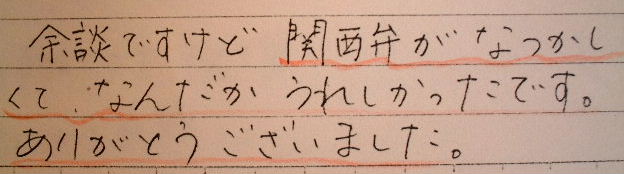 余談ですけど 関西弁がなつかし
くて、なんだか うれしかったです。
ありがとうございました。